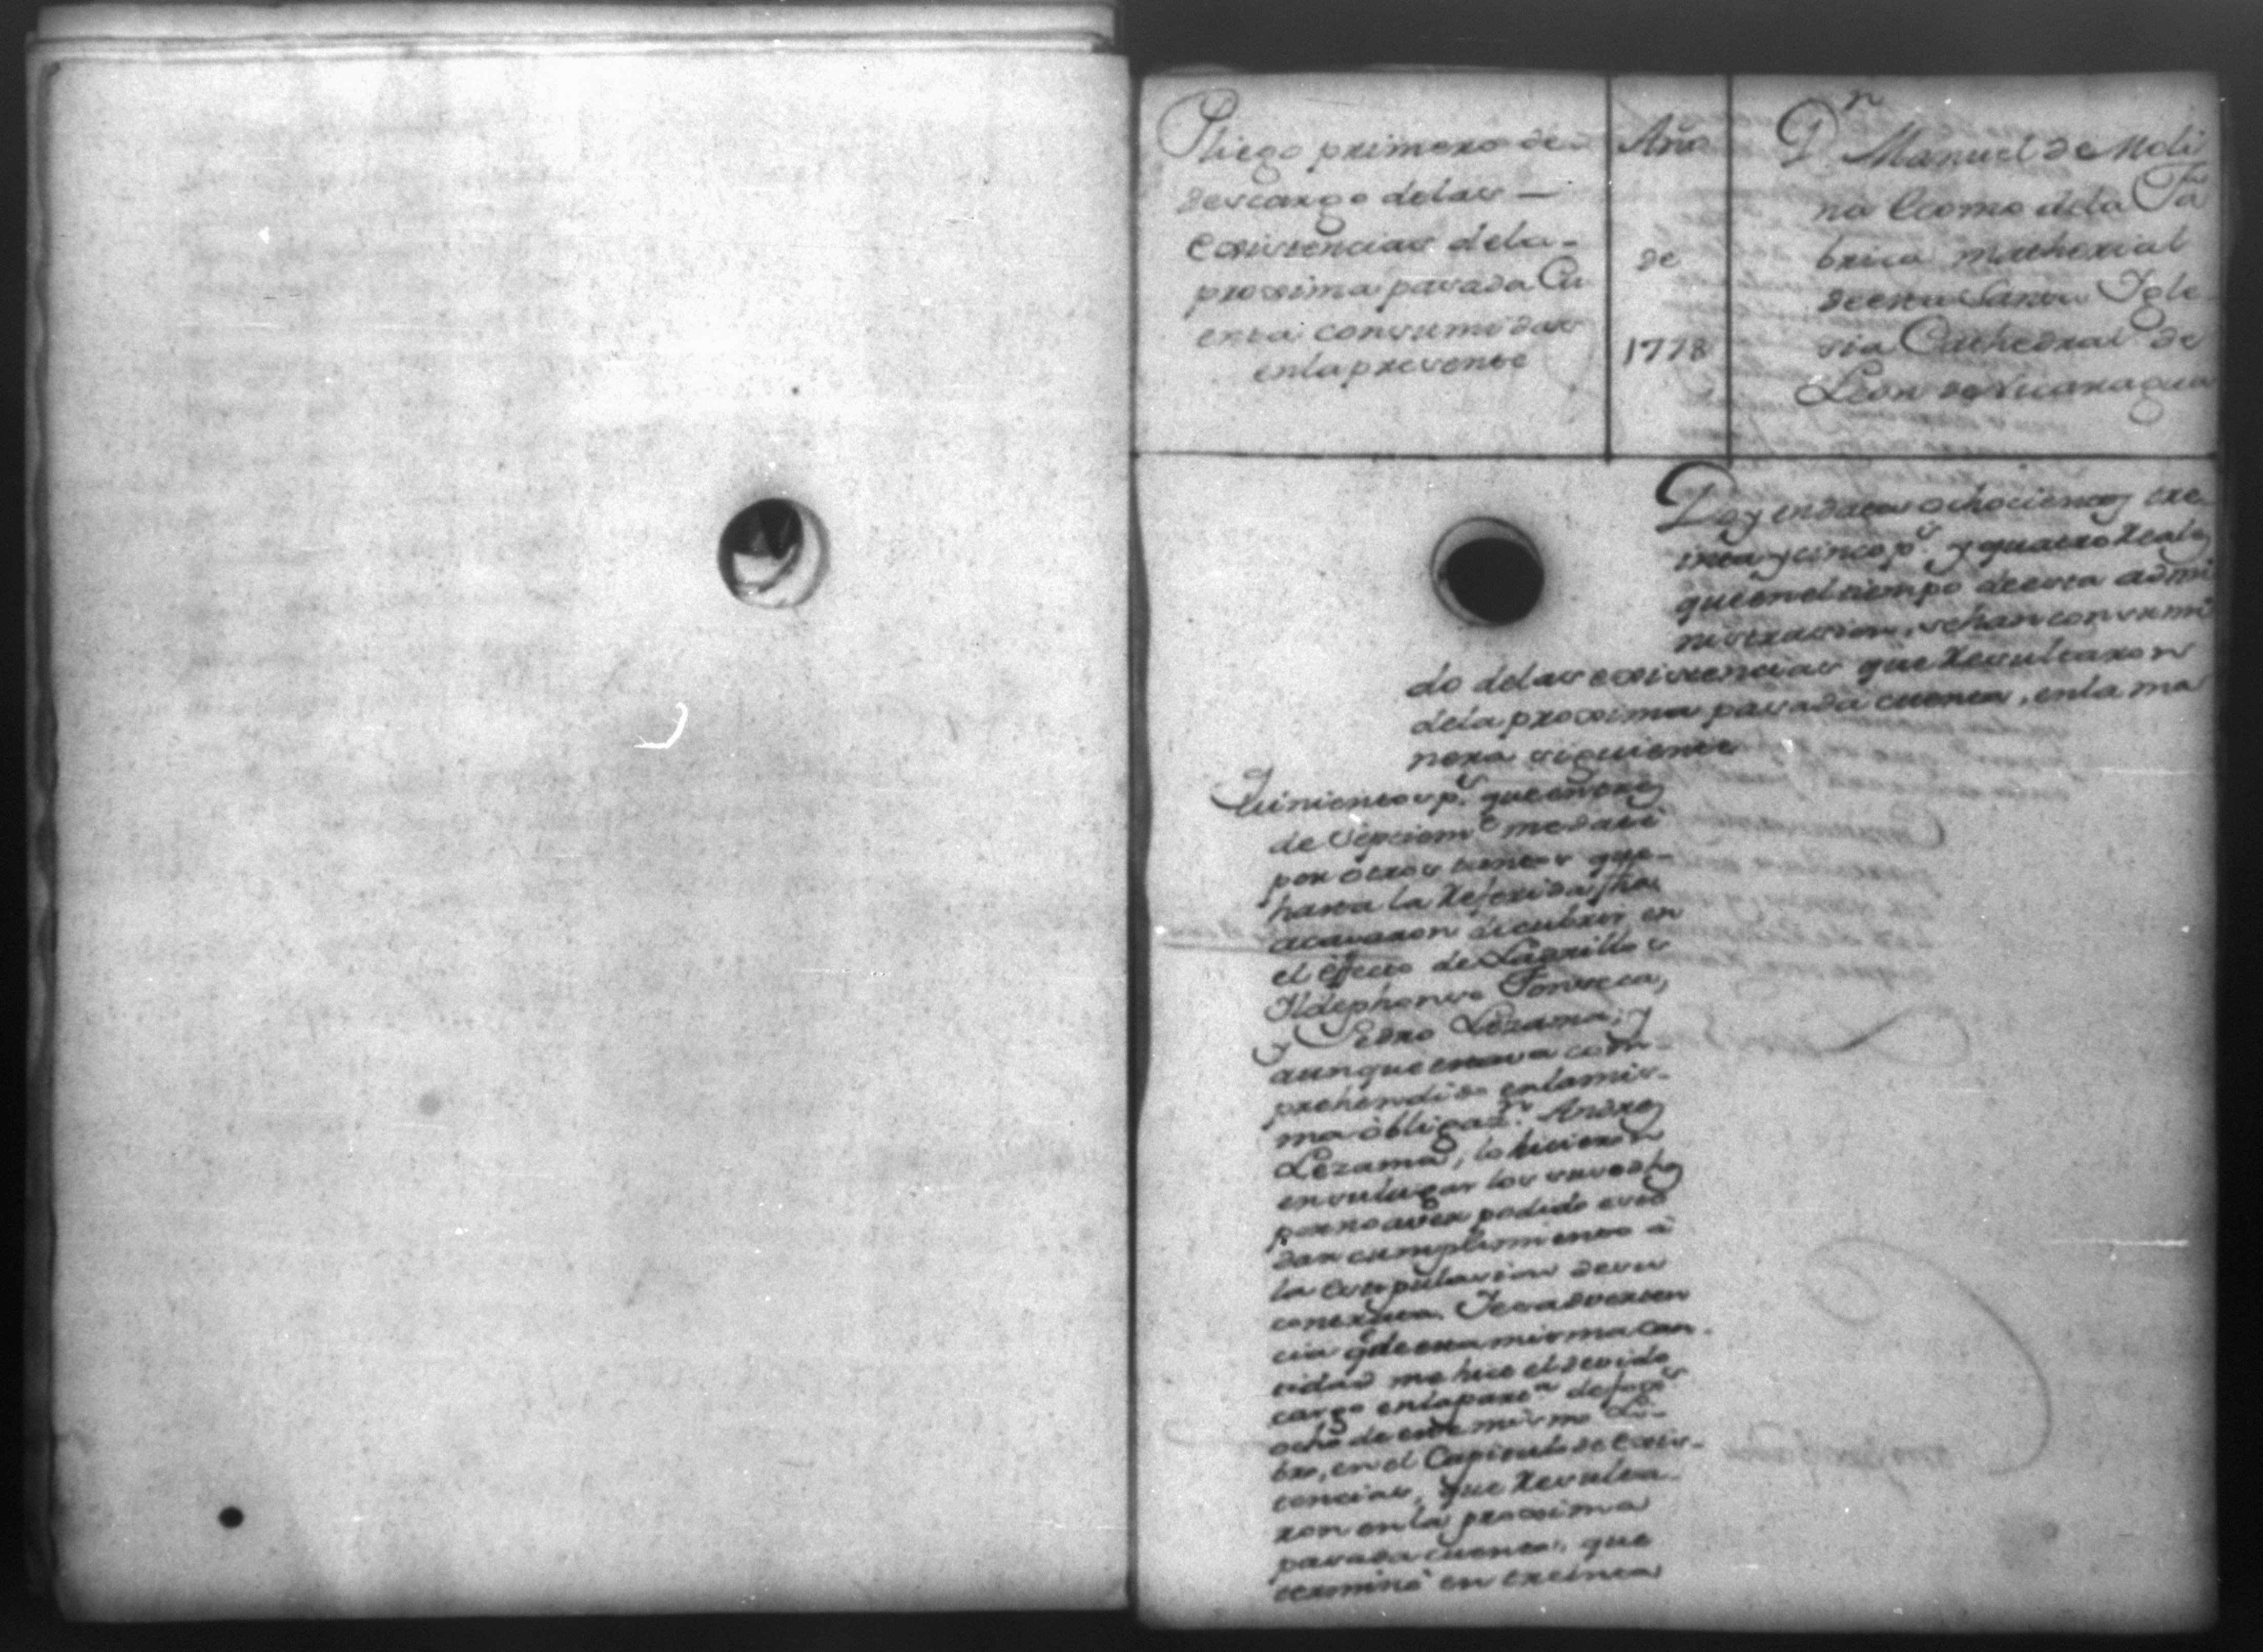 Pliego primero de
descargo delas —
existencias dela-
proxima pasada Cu
enta consumidas
enla presente
Año
de
1778
Dn. Manuel de Moli
na Ecomo dela Fa
brica matherial
de esta Santa Igle
sia Cathedral de
Leon de Nicaragua
Doy en data ochocientos tre
inta y cinco ps. y quatro Reales
que en el tiempo de esta admi
nistracion, se han consumi
do delas existencias que Resultaron
dela proxima pasada cuenta, enla ma
nera siguiente
Quinientos ps. que en tres
de Septieme me dati
por otros tantos que-
hasta la Referida fha
acavaron de cubrir en
el effecto de Ladrillos
Ildephonso Fonseca,
y Pedro Lezama; y
aunque estava com-
prehendido enlamis-
ma obligazn. Andres
Lezama, lo hicieron
en su lugar los susodhos
por no aver podido este
dar cumplimiento à
la estipulacion de su
contrata. Es advertencia
cia qde esta misma can-
tidad me hice el devido
cargo enlapartª de foxs
ocho de este mismo Li-
bro, en el Capitulo de Exis-
tencias, que Resulta-
ron en la proxima
pasada cuenta, que
terminò en treinta